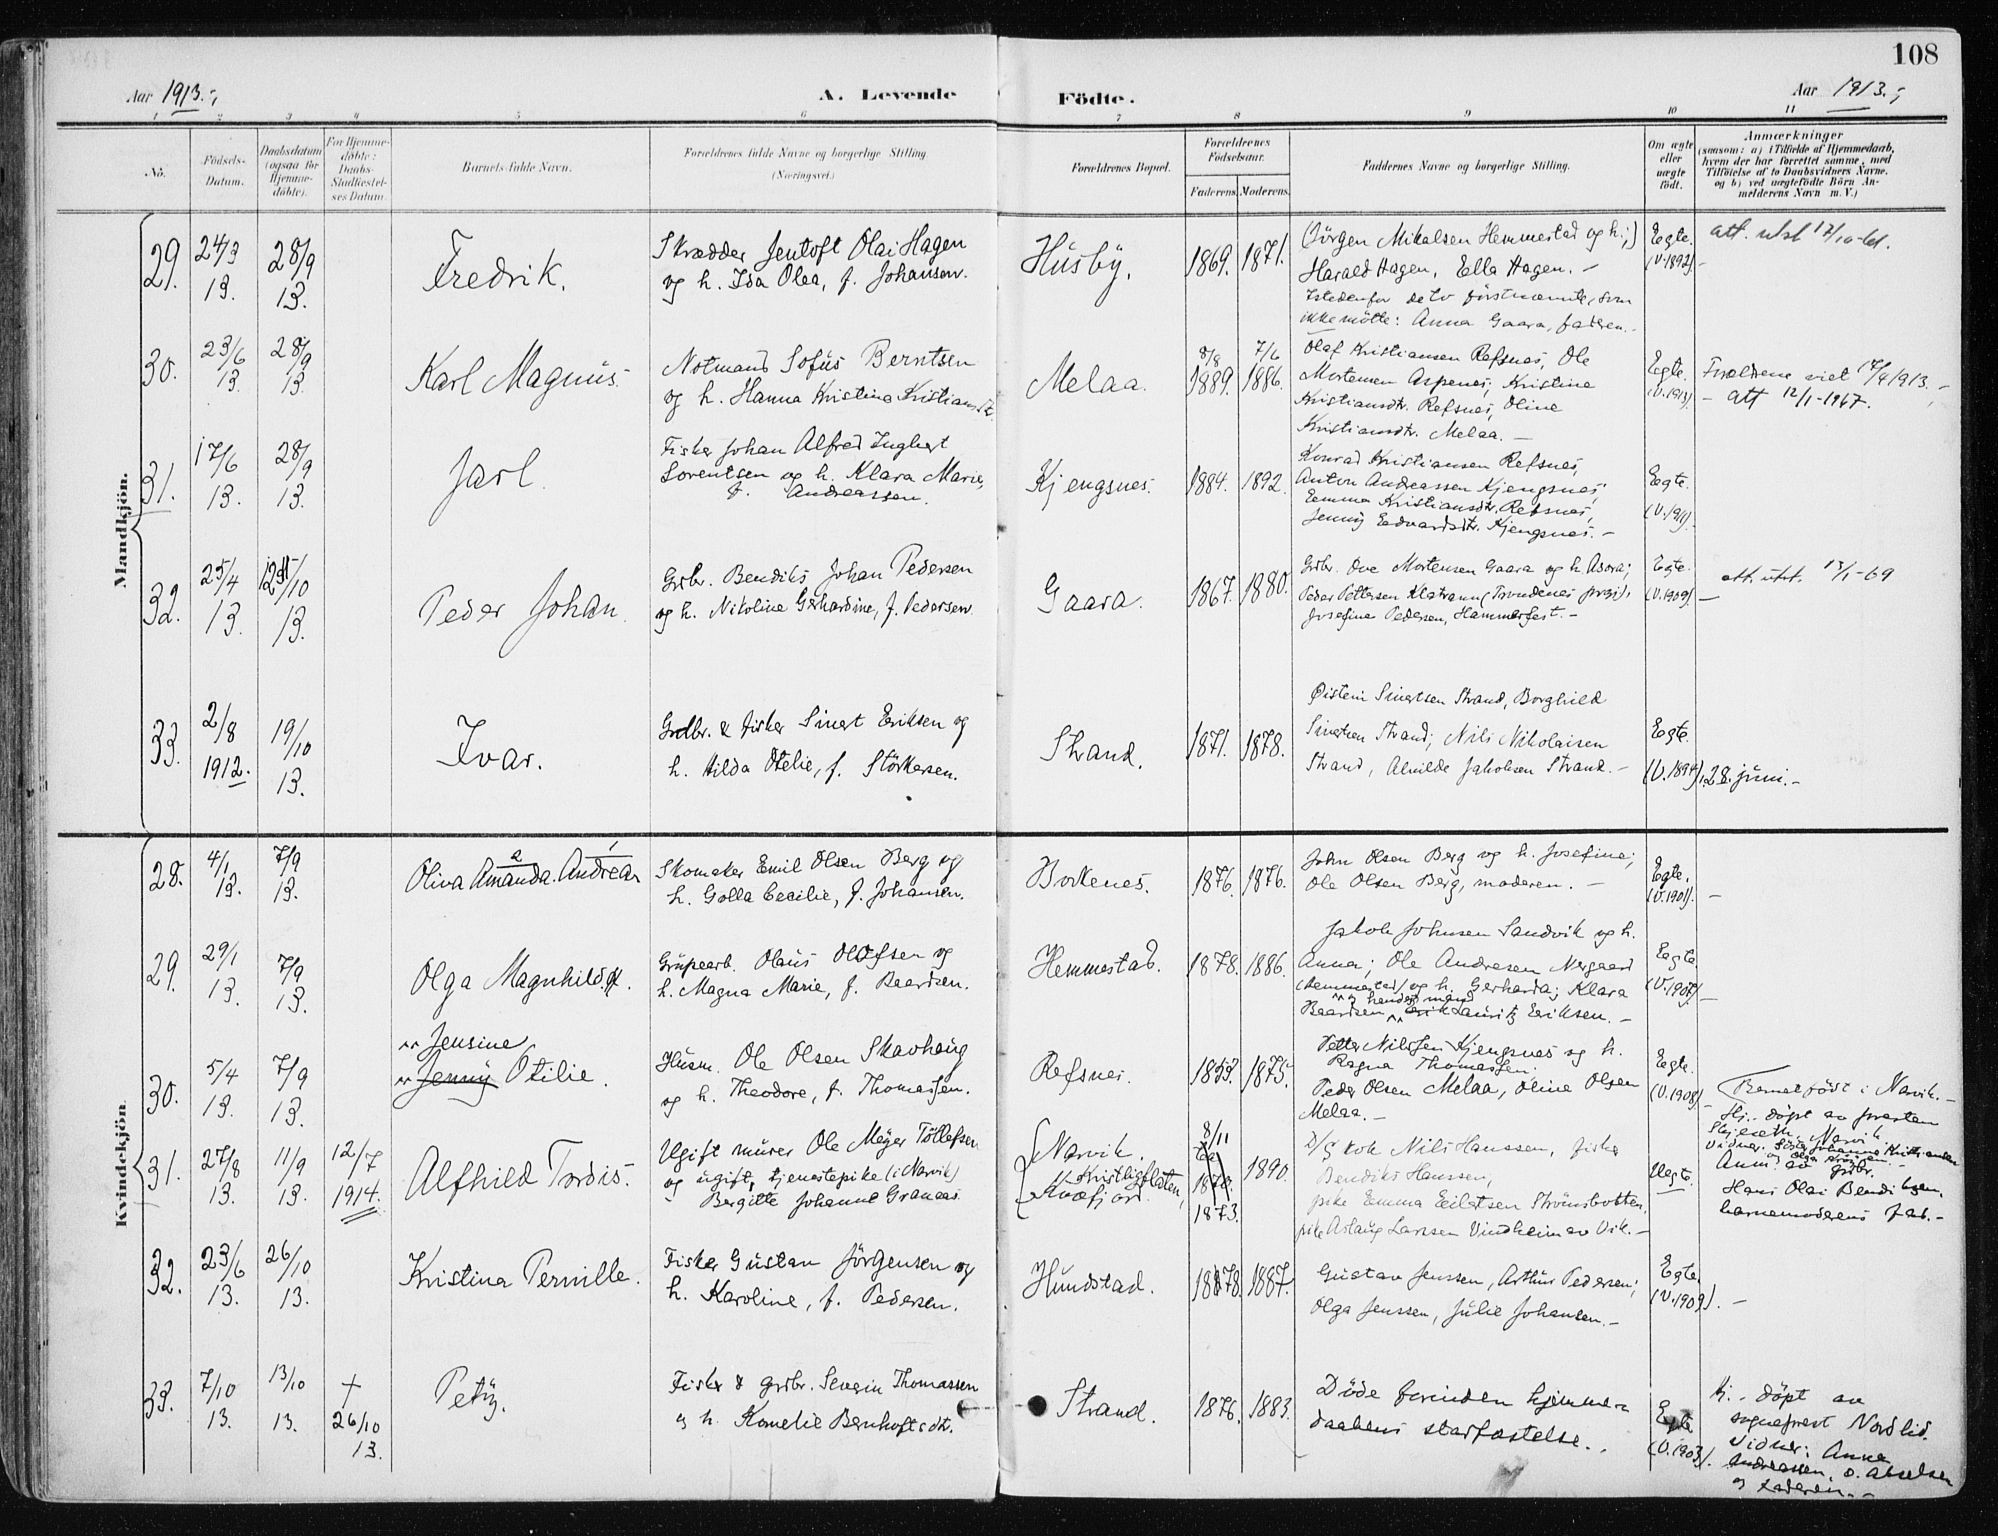 108
Aar 1913.;
A. Levende
Födte.
Aar 1913.;
1 2 3 4 5 6 7 8 9 10 11
No.
Födsels-Datum.
Daabsdatum (ogsaa for Hjemme-döbte).
For Hjemme-döbte: Daabs-Stadfæstel-ses Datum.
Barnets fulde Navn.
Forældrenes fulde Navne og borgerlige Stilling
(Næringsvei.)
Forældrenes Bopæl.
Forældrenes Födselsaar.
Faderens. Moderens.
Faddernes Navne og borgerlige Stilling.
Om ægte eller uægte födt.
Anmærkninger
(saasom: a) i Tilfælde af Hjemmedaab, hvem der har forrettet samme, med Tilföielse af to Daabsvidners Navne. og b) ved uægtefödte Börn An-melderens Navn m. V.)
Mandkjön.
29. 24/3 13. 28/9 13. Fredrik.
Skrædder Jentoft Olai Hagen
og h. Ida Olea, f. Johansen.
Husby. 1869. 1871.
(Jörgen Mikalsen Hemmestad og h.;)
Harald Hagen, Ella Hagen. -
Istedenfor de to förstnævnte, som
ikke mötte: Anna Gaara, faderen.
Egte. (V. 1892). -
att. utst 17/10-61.
30. 23/6 13. 28/9 13. Karl Magnus.
Notmand Sofus Berntsen
og h. Hanna Kristina Kristiansdt.
Melaa. 8/8 1889. 7/6 1886.
Olaf Kristiansen Refsnes, Ole
Mortensen Aspenes, Kristine
Kristiansdtr. Refsnes, Oline
Kristiansdtr. Melaa. -
Egte. (V. 1913).
Forældrene viet 17/4 1913. -
- att 12/1-1967.
31. 17/6 13. 28/9 13. Jarl.
Fisker Johan Alfred Ingbert
Lorentsen og h. Klara Marie,
f. Andreassen.
Kjengsnes. 1884. 1892.
Konrad Kristiansen Refsnes,
Anton Andreassen Kjengsnes,
Emma Kristiansdtr. Refsnes,
Jenny Edvardsdtr. Kjengsnes. -
Egte. (V. 1911).
32. 25/4 13. /10 13. Peder Johan.
Grdbr. Bendiks Johan Pedersen
og h. Nikoline Gerhardine, f. Pedersen.
Gaara. 1867. 1880.
Grdbr. Ove Mortensen Gaara og h. Asora;
Peder Pettersen (Trondenes præg.),
Josefine Pedersen, Hammerfest. -
Egte. (V. 1909). -
att. utst. 13/1-69
33. 2/8 1912. 19/10 13. Ivar.
Grdbr. & fisker Sinert Eriksen og
h. Hilda Otelie, f. Störkersen.
Strand. 1871. 1878.
Øistein Sinertsen Strand, Borghild
Sinertsen Strand; Nils Nikolaisen
Strand, Alvilde Jakobsen Strand. -
Egte. (V. 1897), 28. juni. -
Kvindekjön.
28. 4/1 13. 7/9 13. Oliva Amanda Andrea
2 1
Skomaker Emil Olsen Berg og
h. Golla Cecilie, f. Johansen.
Borkenes. 1876. 1876.
John Olsen Berg og h. Josefine;
Ole Olsen Berg, moderen. -
Egte. (V. 1901). -
29. 29/1 13. 7/9 13. Olga Magnhild.
Grubearb. Olaus Olofsen og
h. Magna Marie, f. Baardsen.
Hemmestad. 1878. 1886.
Jakob Johnsen Sandvik og h.
Anna; Ole Andresen Nergaard
(Hemmestad) og h. Gerharda; Klara
Baardsen og hendes mand Lauritz Eriksen. -
Egte. (V. 1907). -
30. 5/4 13. 7/9 13. Jensine
Jenny Otilie.
Husm. Ole Olsen Skavhaug
og h. Theodore, f. Thomassen.
Refsnes. 1853. 1875.
Petter Nilssen Kjengsnes og h.
Ragna Thomassen.
Peder Olsen Melaa, Oline Olsen
Melaa. -
Egte. (V. 1908) -
31. 27/8 13. 11/9 13. 12/7 1914. Alfhild Tordis.
Ugift murer Ole Meyer Töllefsen
og ugift, tjenestepike (i Narvik)
Bergitte Johanne Granaas.
Narvik. Kristligflaten, Kvæfjord. 8/11 1873. 1890.
Nils Hanssen, fisker
Bendiks Hanssen,
pike Emma Eilertsen Strömsbotten,
pike Aslaug Larssen Vindheim av Vik. -
Uegte.
Barnet födt i Narvik. -
Hj.-döpt av presten
Narvik.
Vidner: Johanna Kristiansen
og Olga
Anm. av grdbr.
Hans Olai Bendiksen,
barnemoderens far. -
32. 23/6 13. 26/10 13. Kristina Pernille.
Fisker Gustav Jörgensen og
h. Karoline, f. Pedersen.
Hundstad. 1878. 1887.
Gustav Jenssen, Arthur Pedersen;
Olga Jenssen, Julie Johansen. -
Egte. (V. 1909). -
33. 7/10 13. 13/10 13. † 26/10 13. Petty.
Fisker & grdbr. Severin Thomassen
og h. Kornelie Bernhoftsdtr.
Strand. 1876. 1883.
Döde forinden hjemme-
daabens stadfæstelse.
Egte (V. 1903).
Hj.-döpt av
sogneprest Nordlid.
Vidner: Anna
Andreassen, O. Akselsen
og faderen. -